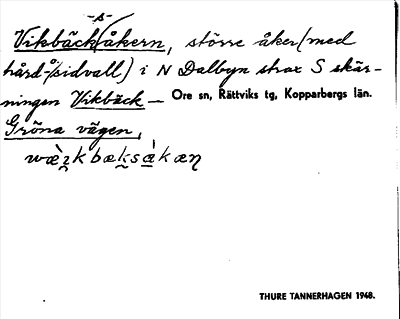 -s-
Vikbäck/åkern, större åker (med
hård- o/sidvall) i N Dalbyn strax S skär-
ningen Vikbäck – Ore sn, Rättviks tg, Kopparbergs län.
Gröna vägen,
THURE TANNERHAGEN 1948.